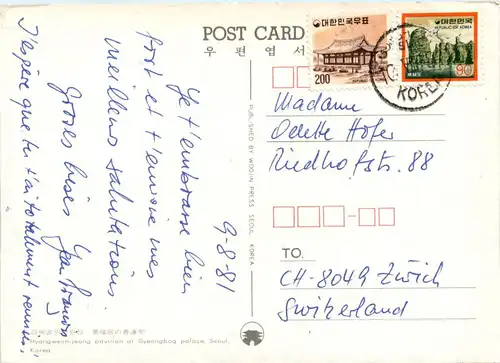 POST CARD
우편엽서
대한민국우표
200
대한민국
REPUBLIC OF KOREA
90
KOREA
9-8-81
Je t'embrasse bien
fort et t'envoie mes
meilleures salutations.
Grosses bises
J'espère que tu t'ai totalement remise,
Madame
Odette Hofer
Riedhofstr. 88
TO.
CH-8049 Zürich
Switzerland
PUBLISHED BY WOOJIN PRESS SEOUL KOREA
Hyangweon-jeong pavilion at Gyeongbog palace, Seoul,
Korea